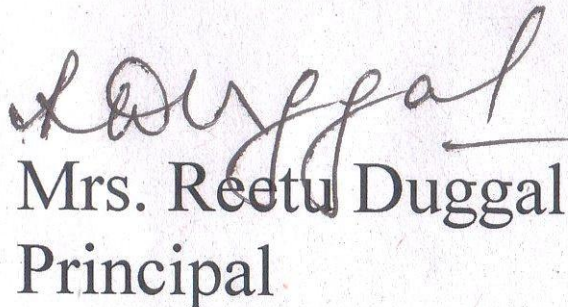 RDuggal
Mrs. Reetu Duggal
Principal